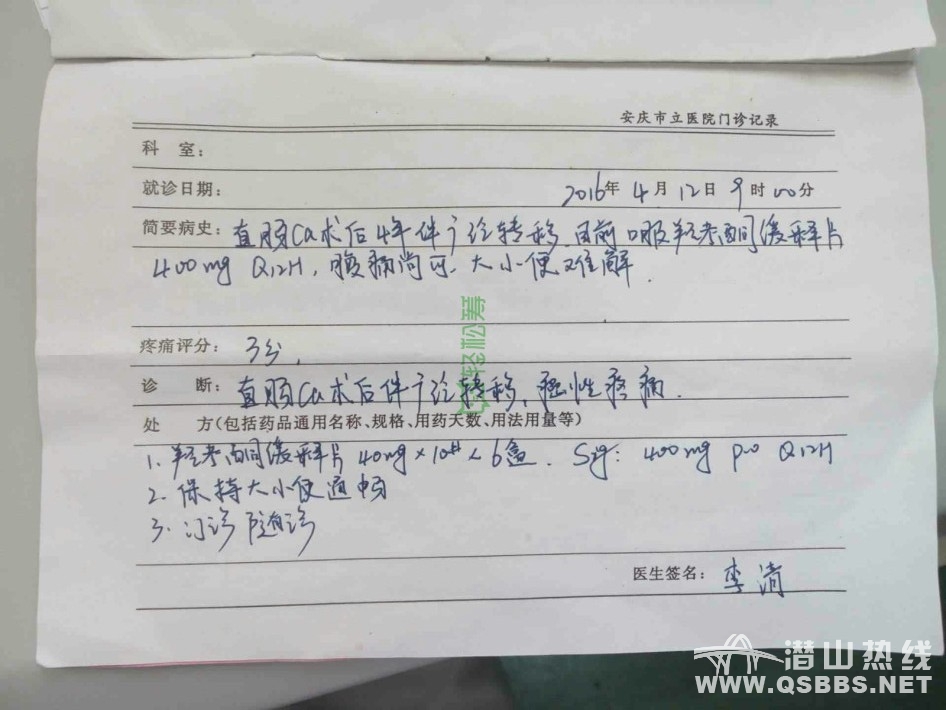 安庆市立医院门诊记录
科 室：
就诊日期： 2016年 4月 12日 9时 00分
简要病史：直肠Ca术后4年伴广泛转移，目前口服羟考酮缓释片
400mg Q12H，腹痛尚可，大小便难解．
疼痛评分： 3分，
诊 断：直肠Ca术后伴广泛转移，癌性疼痛．
处 方(包括药品通用名称、规格、用药天数、用法用量等)
1. 羟考酮缓释片 40mg×10#×6盒． Sig: 400mg po Q12H
2. 保持大小便通畅
3. 门诊随诊
医生签名： 李清
轻松筹
潜山热线
WWW.QSBBS.NET